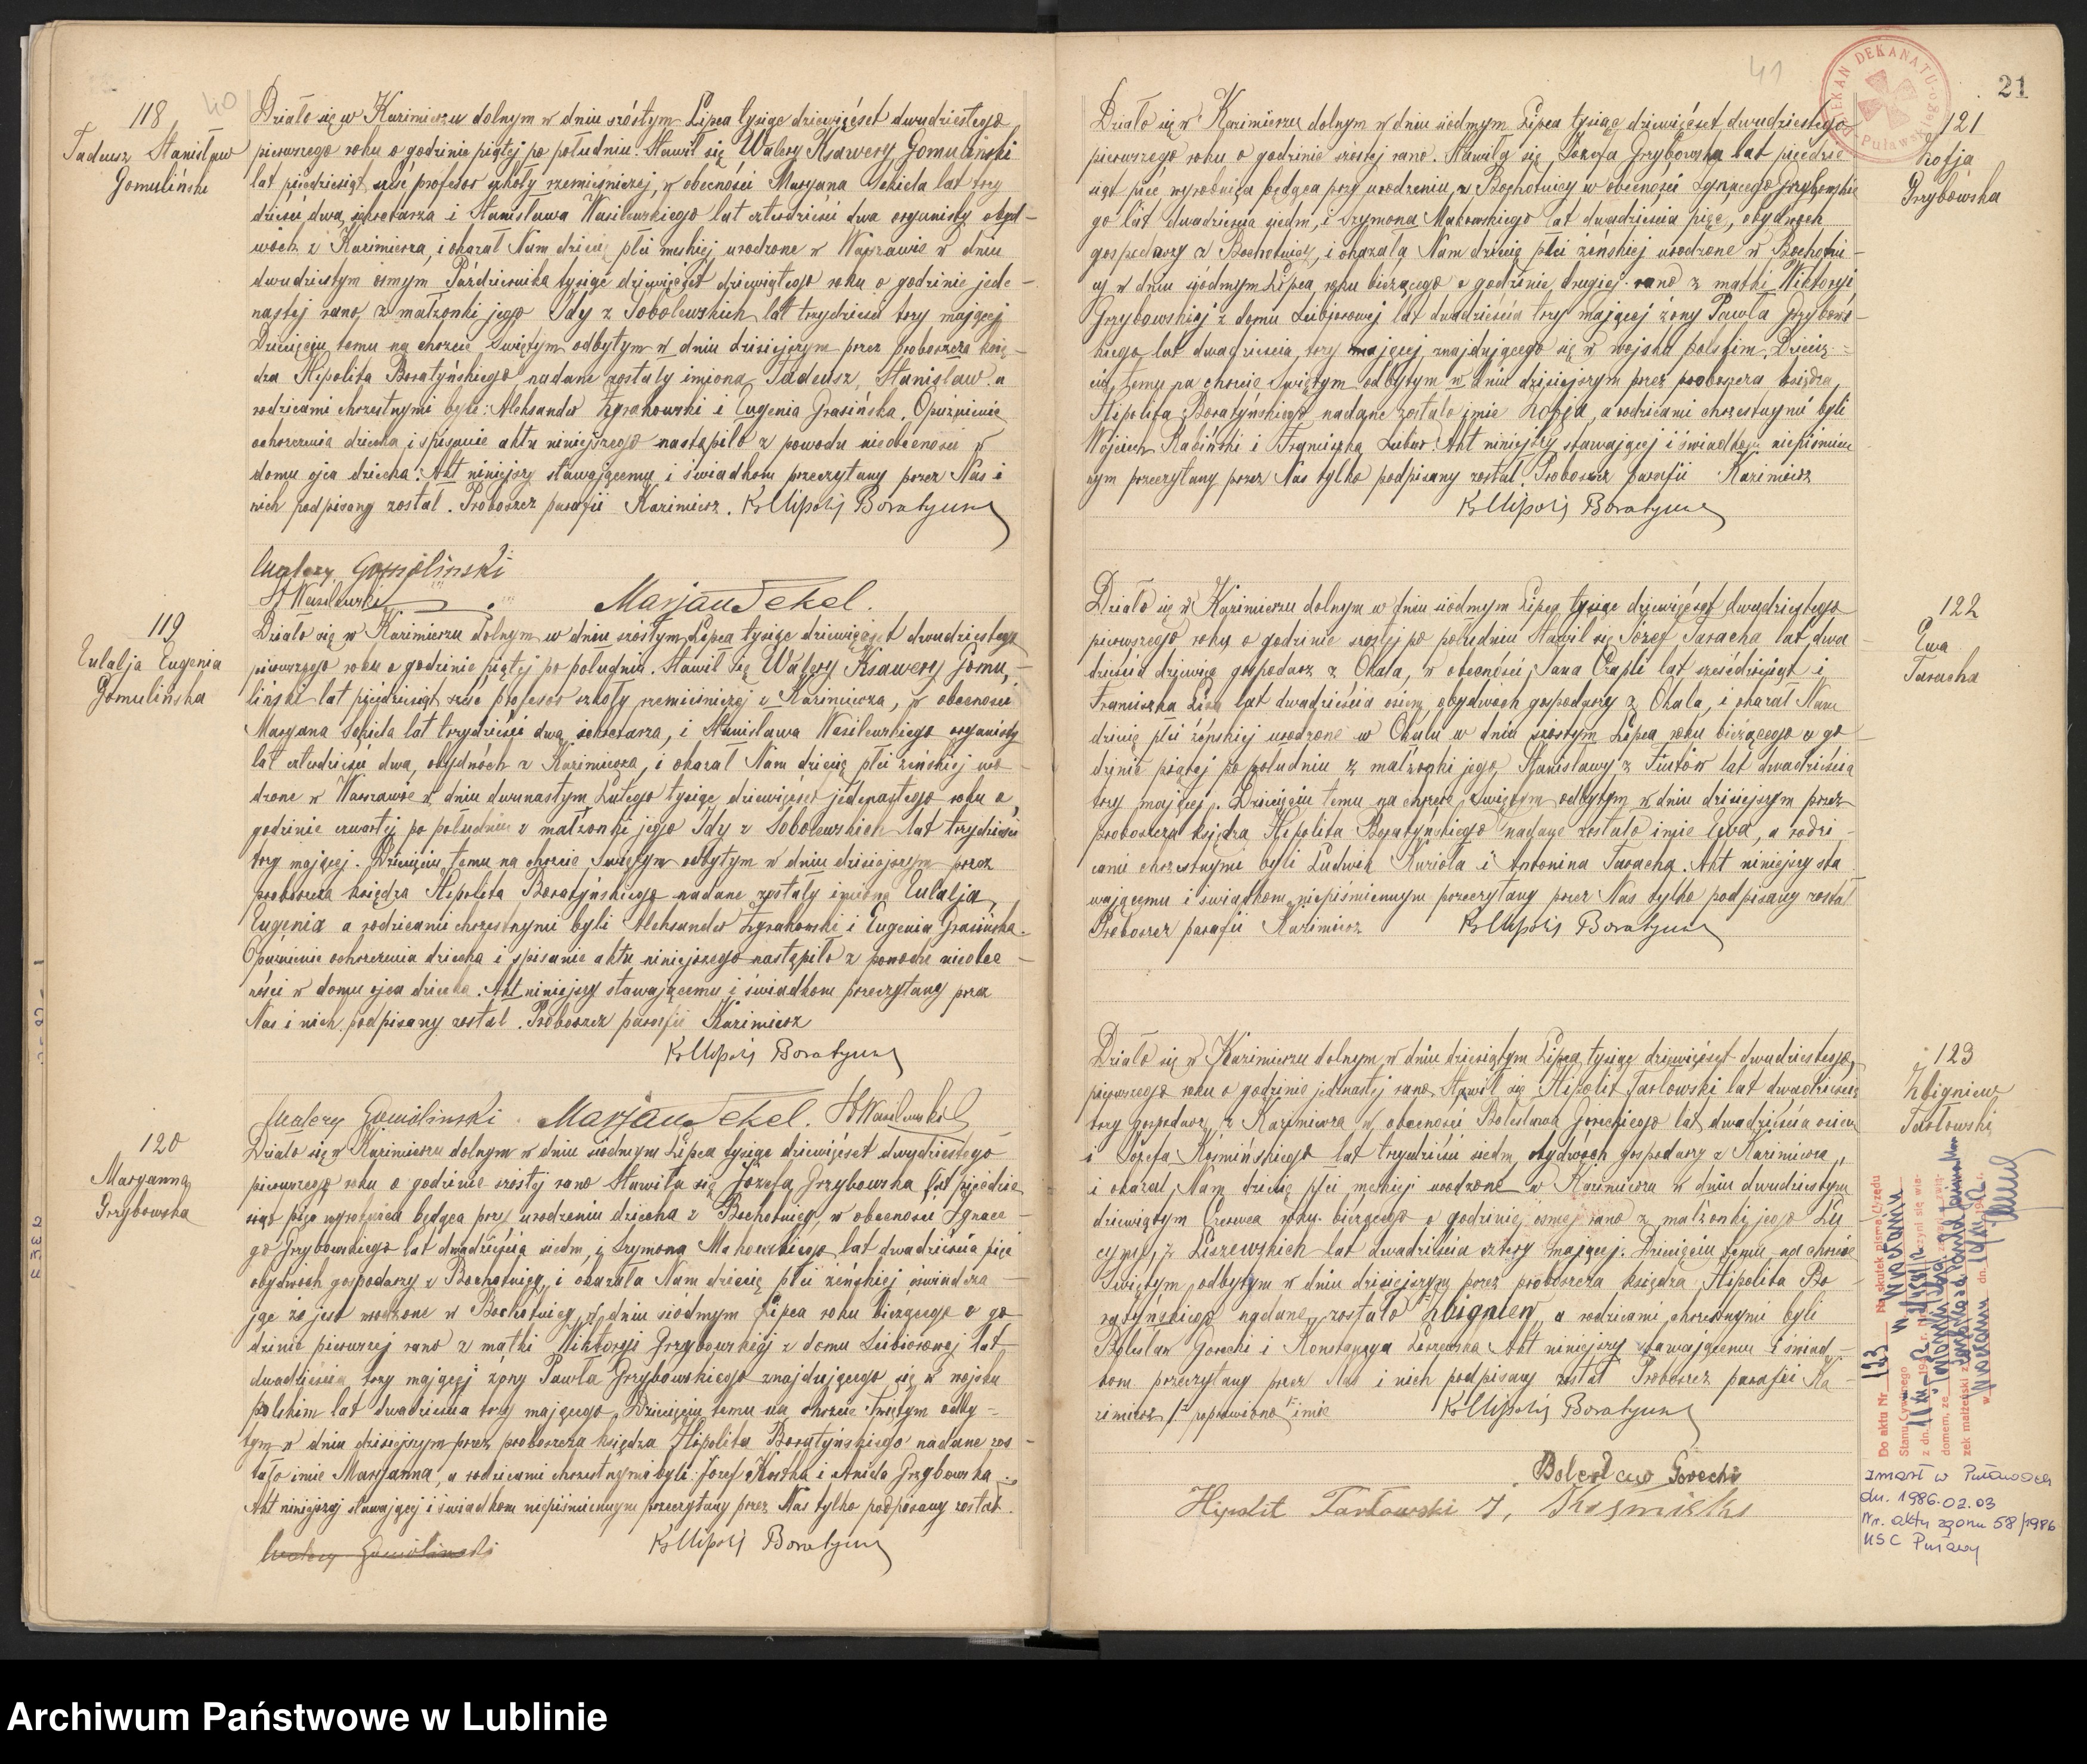 40
118
Tadeusz Stanisław
Gomuliński
Działo się w Kazimierzu dolnym w dniu szóstym Lipca tysiąc dziewięćset dwudziestego
pierwszego roku o godzinie piątej po południu. Stawił się Walery Ksawery Gomuliński
lat pięćdziesiąt sześć profesor szkoły rzemieślniczej, w obecności Maryana Sekieła lat trzy
dzieści dwa, sekretarza i Stanisława Wasilewskiego lat czterdzieści dwa organisty obyd-
wóch z Kazimierza, i okazał Nam dziecię płci męskiej urodzone w Warszawie w dniu
dwudziestym ósmym Października tysiąc dziewięćset dziewiątego roku o godzinie jede-
nastej rano, z małżonki jego Idy z Sobolewskich lat trzydzieści trzy mającej
Dziecięciu temu na chrzcie Świętym odbytym w dniu dzisiejszym przez proboszcza księ-
dza Hipolita Boratyńskiego, nadane zostały imiona Tadeusz, Stanisław a
rodzicami chrzestnymi byli: Aleksander Zgrakowski i Eugenia Grasińska. Opóźnienie
ochrzczenia dziecka i spisanie aktu niniejszego nastąpiło z powodu nieobecności w
domu ojca dziecka. Akt niniejszy stawającemu i świadkom przeczytany przez Nas i
nich podpisany został. Proboszcz parafii Kazimierz. Ks Hipolit Boratyński
Walery Gomoliński
St Wasilewski Marjan Sekeł.
119
Eulalja Eugenia
Gomulińska
Działo się w Kazimierzu dolnym w dniu szóstym Lipca tysiąc dziewięćset dwudziestego
pierwszego roku o godzinie piątej po południu. Stawił się Walery Ksawery Gomu-
liński lat pięćdziesiąt sześć profesor szkoły rzemieślniczej z Kazimierza, w obecności
Maryana Sekieła lat trzydzieści dwa sekretarza, i Stanisława Wasilewskiego organisty
lat czterdzieści dwa, obydwóch z Kazimierza, i okazał Nam dziecię płci żeńskiej uro-
dzone w Warszawie w dniu dwunastym Lutego tysiąc dziewięćset jedenastego roku o
godzinie czwartej po południu z małżonki jego Idy z Sobolewskich lat trzydzieści
trzy mającej. Dziecięciu temu na chrzcie Świętym odbytym w dniu dzisiejszym przez
proboszcza księdza Hipolita Boratyńskiego nadane zostały imiona Eulalja
Eugenia a rodzicami chrzestnymi byli Aleksander Zgrakowski i Eugenia Grasińska.
Opóźnienie ochrzczenia dziecka i spisanie aktu niniejszego nastąpiło z powodu nieobec-
ności w domu ojca dziecka. Akt niniejszy stawającemu i świadkom przeczytany przez
Nas i nich podpisany został. Proboszcz parafii Kazimierz
Ks Hipolit Boratyński
Walery Gomoliński Marjan Sekeł. St Wasilewski
120
Maryanna
Grzybowska
Działo się w Kazimierzu dolnym w dniu siódmym Lipca tysiąc dziewięćset dwudziestego
pierwszego roku o godzinie szóstej rano Stawiła się Józefa Grzybowska lat pięćdzie
siąt pięć wyrobnica będąca przy urodzeniu dziecka z Bochotnicy, w obecności Ignace-
go Grzybowskiego lat dwadzieścia siedm, i Szymona Makowskiego lat dwadzieścia pięć
obydwóch gospodarzy z Bochotnicy, i okazała Nam dziecię płci żeńskiej oświadcza
jąc że jest urodzone w Bochotnicy w dniu siódmym Lipca roku bieżącego o go
dzinie pierwszej rano z matki Wiktoryi Grzybowskiej z domu Leibiorowej lat
dwadzieścia trzy mającej żony Pawła Grzybowskiego znajdującego się w wojsku
polskim lat dwadzieścia trzy mającego. Dziecięciu temu na chrzcie Świętym odby-
tym w dniu dzisiejszym przez proboszcza księdza Hipolita Boratyńskiego nadane zos-
tało imie Maryanna, a rodzicami chrzestnymi byli: Józef Kostka i Aniela Grzybowska.
Akt niniejszy stawającej i świadkom niepiśmiennym przeczytany przez Nas tylko podpisany został.
Walery Gomoliński Ks Hipolit Boratyński
41
21
DZIEKAN DEKANATU
Puławskiego
121
Zofja
Grzybowska
Działo się w Kazimierzu dolnym w dniu siódmym Lipca tysiąc dziewięćset dwudziestego
pierwszego roku o godzinie szóstej rano. Stawiła się Józefa Grzybowska lat pięćdzie
siąt pięć, wyrobnica będąca przy urodzeniu, z Bochotnicy w obecności Ignacego Grzybowskie
go lat dwadzieścia siedm, i Szymona Makowskiego lat dwadzieścia pięć, obydwóch
gospodarzy z Bochotnicy, i okazała Nam dziecię płci żeńskiej urodzone w Bochotni-
cy w dniu siódmym Lipca roku bieżącego o godzinie drugiej rano z matki Wiktoryi
Grzybowskiej z domu Leibjorowej lat dwadzieścia trzy mającej żony Pawła Grzybows-
kiego lat dwadzieścia trzy mającej, znajdującego się w wojsku polskim. Dziecię-
ciu temu na chrzcie Świętym odbytym w dniu dzisiejszym przez proboszcza księdza
Hipolita Boratyńskiego nadane zostało imie Zofja, a rodzicami chrzestnymi byli
Wojciech Rabiński i Franciszka Leibior. Akt niniejszy stawającej i świadkom niepiśmien
nym przeczytany przez Nas tylko podpisany został. Proboszcz parafii Kazimierz
Ks Hipolit Boratyński
122
Ewa
Taracha
Działo się w Kazimierzu dolnym w dniu siódmym Lipca tysiąc dziewięćset dwudziestego
pierwszego roku o godzinie szóstej po południu Stawił się Józef Taracha lat dwa
dzieścia dziewięć gospodarz z Okala, w obecności Jana Czapli lat sześćdziesiąt i
Franciszka lat dwadzieścia osiem obydwóch gospodarzy z Okala, i okazał Nam
dziecię płci żeńskiej urodzone w Okalu w dniu szóstym Lipca roku bieżącego o go
dzinie piątej po południu z małżonki jego Stanisławy z Fiutów lat dwadzieścia
trzy mającej. Dziecięciu temu na chrzcie Świętym odbytym w dniu dzisiejszym przez
proboszcza księdza Hipolita Boratyńskiego nadane zostało imie Ewa, a rodzi-
cami chrzestnymi byli Ludwik Kuzioła i Antonina Taracha. Akt niniejszy sta
wającemu i świadkom niepiśmiennym przeczytany przez Nas tylko podpisany został
Proboszcz parafii Kazimierz Ks Hipolit Boratyński
123
Zbigniew
Tarłowski
Działo się w Kazimierzu dolnym w dniu dziesiątym Lipca tysiąc dziewięćset dwudziestego
pierwszego roku o godzinie jedenastej rano. Stawił się Hipolit Tarłowski lat dwadzieścia
trzy gospodarz z Kazimierza w obecności Bolesława Goreckiego lat dwadzieścia osiem
i Józefa Kośmińskiego lat trzydzieści siedm, obydwóch gospodarzy z Kazimierza,
i okazał Nam dziecię płci męskiej urodzone w Kazimierzu w dniu dwudziestym
dziewiątym Czerwca roku bieżącego o godzinie ósmej rano z małżonki jego Lu
cyny z Liszewskich lat dwadzieścia cztery mającej. Dziecięciu temu na chrzcie
Świętym odbytym w dniu dzisiejszym przez proboszcza księdza Hipolita Bo
ratyńskiego nadane zostało Zbigniew, a rodzicami chrzestnymi byli
Bolesław Gorecki i Konstancya Liszewska Akt niniejszy stawającemu i świad-
kom przeczytany przez Nas i nich podpisany został Proboszcz parafii Ka
zimierz poprawiono imie Ks Hipolit Boratyński
Bolesław Gorecki
Hipolit Tarłowski J.
Do aktu Nr 123 Na skutek pisma Urzędu
Stanu Cywilnego w
z dn. czyni się wia-
domem, że zawarł zwią-
zek małżeński z
w dn.
zmarł w Puławach
dn. 1986.02.03
Nr. aktu zgonu 58/1986
USC Puławy
Archiwum Państwowe w Lublinie